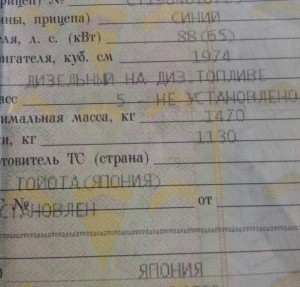 ины, прицепа) СИНИЙ
еля, л. с. (кВт) 88(65)
вигателя, куб. см 1974
ДИЗЕЛЬНЫЙ НА ДИЗ.ТОПЛИВЕ
асс 5 НЕ УСТАНОВЛЕНО
имальная масса, кг 1470
и, кг 1130
отовитель ТС (страна)
ТОЙОТА(ЯПОНИЯ)
№ от
СТАНОВЛЕН
ЯПОНИЯ